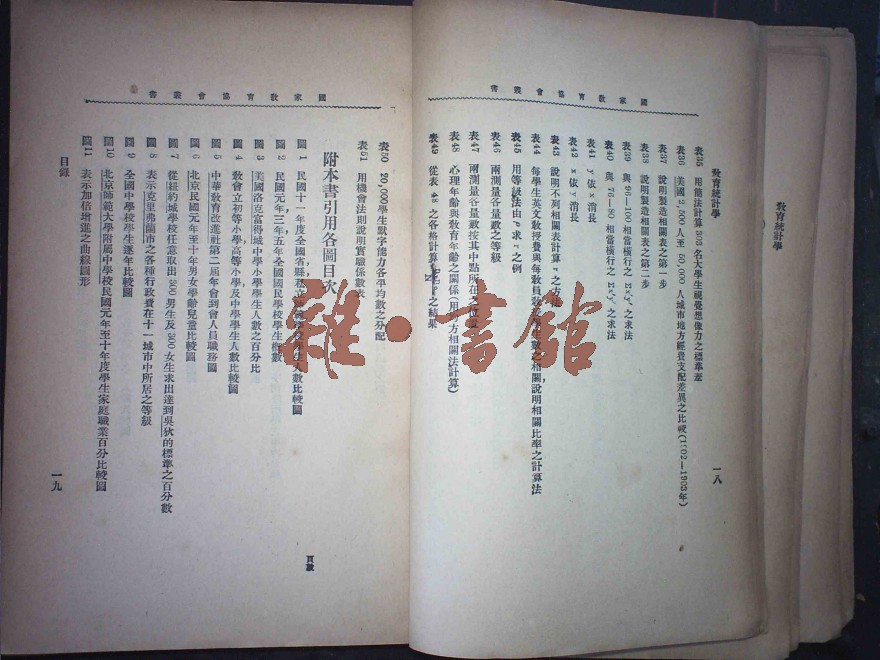 國家教育協會叢書
教育統計學
一八
表35 用簡法計算 203 名大學生視覺想像力之標準差
表36 美國 2,500 人至 50,000 人城市地方經費支配差異之比較(1902—1903年)
表37 說明製造相關表之第一步
表38 說明製造相關表之第二步
表39 與 96—100 相當橫行之 Σx'y' 之求法
表40 與 76—80 相當橫行之 Σx'y' 之求法
表41 y 依 x 消長
表42 x 依 y 消長
表43 說明不列相關表計算 r 之方法
表44 每學生英文教授費與每教員教授學生數之相關說明相關比率之計算法
表45 用等級法由 ρ 求 r 之例
表46 兩測量各量數之等級
表47 兩測量各量數按其中點所在之位置
表48 心理年齡與教育年齡之關係(用四方相關法計算)
表49 從表 之各格計算 之結果
國家教育協會叢書
表50 20,000 學生默字能力各平均數之分配
表51 用機會法則說明實驗係數表
附本書引用各圖目次
頁數
圖 1 民國十一年度全國省縣私立 學生人數比較圖
圖 2 民國元年三年五年全國國民學校學生 數
圖 3 美國洛克富得城中學小學學生人數之百分比
圖 4 教會立初等小學,高等小學,及中學學生人數比較圖
圖 5 中華教育改進社第二屆年會到會人員職務圖
圖 6 北京民國元年至十年男女學齡兒童比較圖
圖 7 從紐約城學校任意取出 300 男生及 300 女生求出達到吳狄的標準之百分數
圖 8 表示克里弗蘭市之各種行政費在十一城市中所居之等級
圖 9 全國中學校學生逐年比較圖
圖10 北京師範大學附屬中學校民國元年至十年度學生家庭職業百分比較圖
圖11 表示加倍增進之曲線圖形
目錄
一九
教育統計學
雜·書館